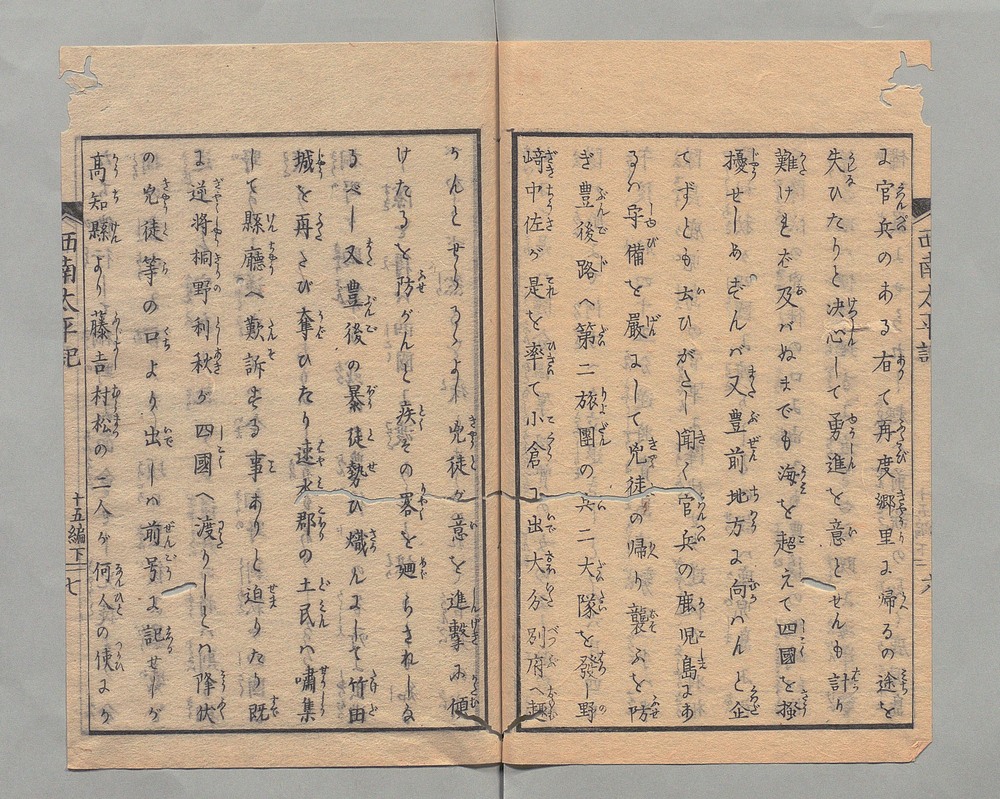 に官兵のある有て再度郷里に帰るの途を
失ひたりと决心して勇進を意とせんも計り
難けれど及バぬまでも海を超えて四國を掻
擾せしめずんバ又豊前地方に向ハんと企
てずとも云ひがたし聞く官兵の鹿児島にあ
るハ守備を嚴にして兇徒の帰り襲ふを防
ぎ豊後路へ第二旅團の兵二大隊を發し野
﨑中佐が是を率て小倉に出大分別府へ趣
かんとせらるゝよし兇徒が意を進擊に傾
けたるを防がんと疾その畧を廻らされしな
るべし又豊後の暴徒勢ひ熾んにして竹田
城を再たび奪ひたり速水郡の土民ハ嘯集
して縣廳へ歎訴する事ありと迫りたり既
に逆将桐野利秋が四國へ渡りしとハ降伏
の兇徒等の口より出しハ前号に記せしが
髙知縣より藤吉村松の二人が何人の使にか
西南太平記
十五編下
七
西南太平記
六